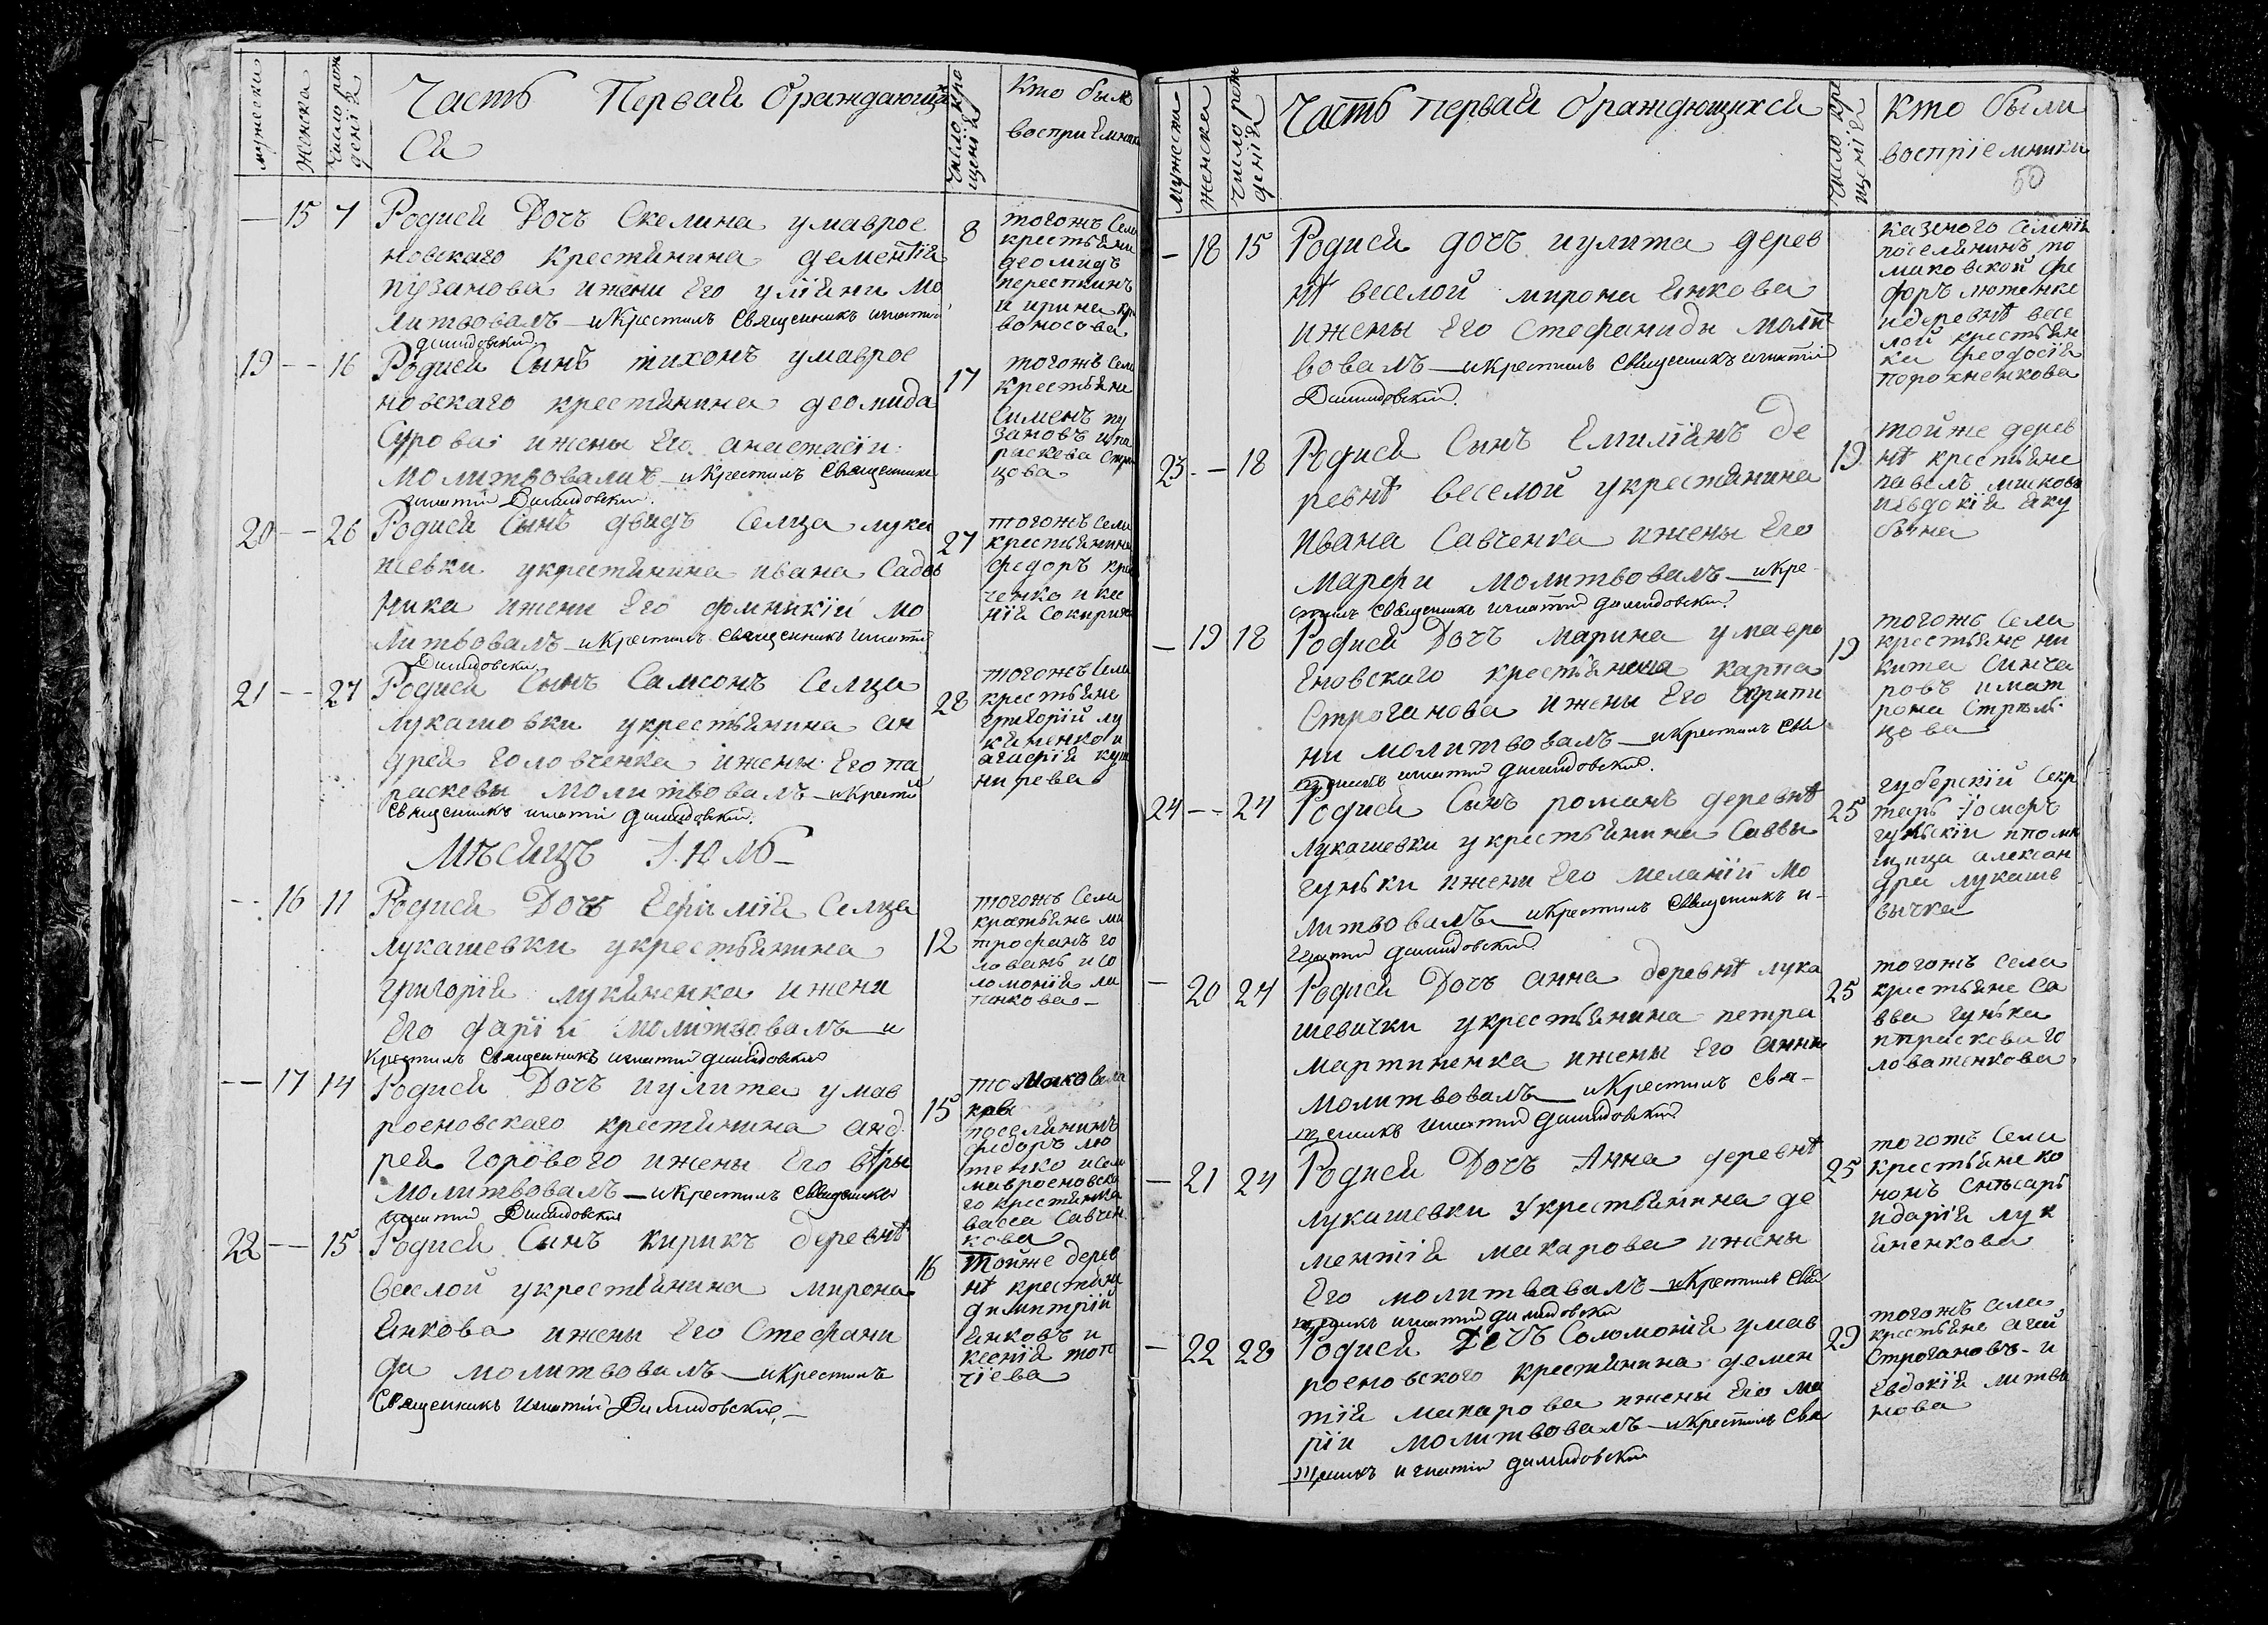 мужеска
женска
число рож
деній
Часть Первай ораждающих
Сй
число кре
щеній
кто был
восприемник
15 7 Родисй Дочь Скелина умаврое
новскаго крестйнина дементій
пузанова ижени Его улійни мо
литвовалъ и Крестилъ Священникъ игнатій
димидовский
8
тогожъ Села
крестьйни
деомидъ
пересткинъ
и ирина кри
воносова
19 16 Родисй Сынъ тихонъ умаврое
новскаго крестйнина деомида
Сурова ижены Его анастасіи
молитвовалъ и Крестилъ Священникъ
игнатій Димидовский
17
тогожъ Села
крестьйни
Сименъ пу
зановъ и па
раскева Стрел
цова
20 26 Родисй Сынъ двидъ Селца лука
шевки укрестйнина ивана Садов
ника ижени Его домникіи мо
литвовалъ и Крестилъ Священникъ игнатій
Димидовски
27
тогожъ Села
крестьйнина
федоръ кра
ченко и ксе
нія Сокирина
21 27 Родисй Сынъ Самсонъ Селца
лукашовки укрестьйнина ан
дрей Головченка ижены Его па
раскевы молитвовалъ и Крестил
Священникъ игнатій димидовский
28
тогожъ Села
крестьйне
григорій лу
кйненко и
агафій куш
нирева
Мѣсйцъ Июль
16 11 Родисй Дочь Ефимій Селца
лукашевки укрестьйнина
григорій лукйненка ижени
Его дарій молитвовалъ и
Крестилъ Священникъ игнатий димидовский
12
тогожъ Села
крестьйне ми
трофанъ го
ловань и Со
ломоній ли
тенкова
17 14 Родисй Дочь иулита умав
роеновскаго крестйнина анд
рей Горового ижены Его вѣры
молитвовалъ и Крестилъ Священикъ
игнатий Димидовский
15
поселйнинъ
федоръ лю
тенко и Села
мавроеновска
го крестйнка
васса Савчен
кова
22 15 Родисй Сынъ кирикъ деревнѣ
веселой укрестьйнина мирона
Енкова ижены Его Стефани
ди молитвовалъ и Крестилъ
Священникъ Игнатий Димидовский
16
тойже дерев
нѣ крестйни
димитрий
Енковъ и
ксеній топ
чіева
мужеска
женска
число рож
деній
Часть первай ораждющихсй
число кре
щеній
кто были
воспріемники
50
18 15 Родисй дочь иулита дерев
нѣ веселой мирона Енкова
ижены Его Стефаниди молит
вовалъ и Крестилъ Священникъ игнатий
Димидовский
казеного Селенія
поселйнинъ по
маковской фе
форъ лютенке
идеревнѣ весе
лой крестьйн
ка феодосій
порохненкова
23 18 Родисй Сынъ Емилійнъ де
ревнѣ веселой укрестйнина
ивана Савченка ижены Его
марфи молитвовалъ и Кре
стилъ Священникъ игнатий димидовский
19
тойже дерев
нѣ крестьйне
павелъ мисковъ
иевдокій йку
бына
19 18 Родисй Дочь марина умавро
Еновскаго крестьйнина карпа
Строганова ижены Его Ирини
ни молитвовалъ и Крестилъ Свя
щенникъ игнатий димидовский
19
тогожъ Села
крестьйне ни
кита Синча
ровъ имат
рона Стрель
цова
24 24 Родисй Сынъ романъ деревнѣ
лукашевки укрестьйнина Саввы
гуньки ижени Его меланіи мо
литвовалъ и Крестилъ Священикъ и
гнатий димидовский
25
губерскій Секр
тарь Іосифъ
гульскіи ипоми
щица алексан
дра лукаше
вычка
20 24 Родисй Дочь анна деревнѣ лука
шевички укрестьйнина петра
мартиненка ижены Его анни
молитвовалъ и Крестилъ Свя
щенникъ Игнатий димидовский
25
тогожъ Села
крестьйне Са
вва гунька
ипраскева го
ловатенкова
21 24 Родисй Дочь Анна деревнѣ
лукашевки укрестьйнина де
ментій макарова ижены
Его молитвавалъ и Крестилъ Свя
щенникъ игнатий димидовски
25
тогожъ Села
крестьйне ко
нонъ Снѣсарь
идарій лук
йненкова
22 28 Родисй Дочь Соломоній умав
роеновского крестйнина демен
тій макарова ижены Его ма
ріи молитвовалъ и Крестилъ Свя
щенникъ игнатий димидовски
29
тогожъ села
крестьйне агей
Строгановъ и
Евдокій литви
нова